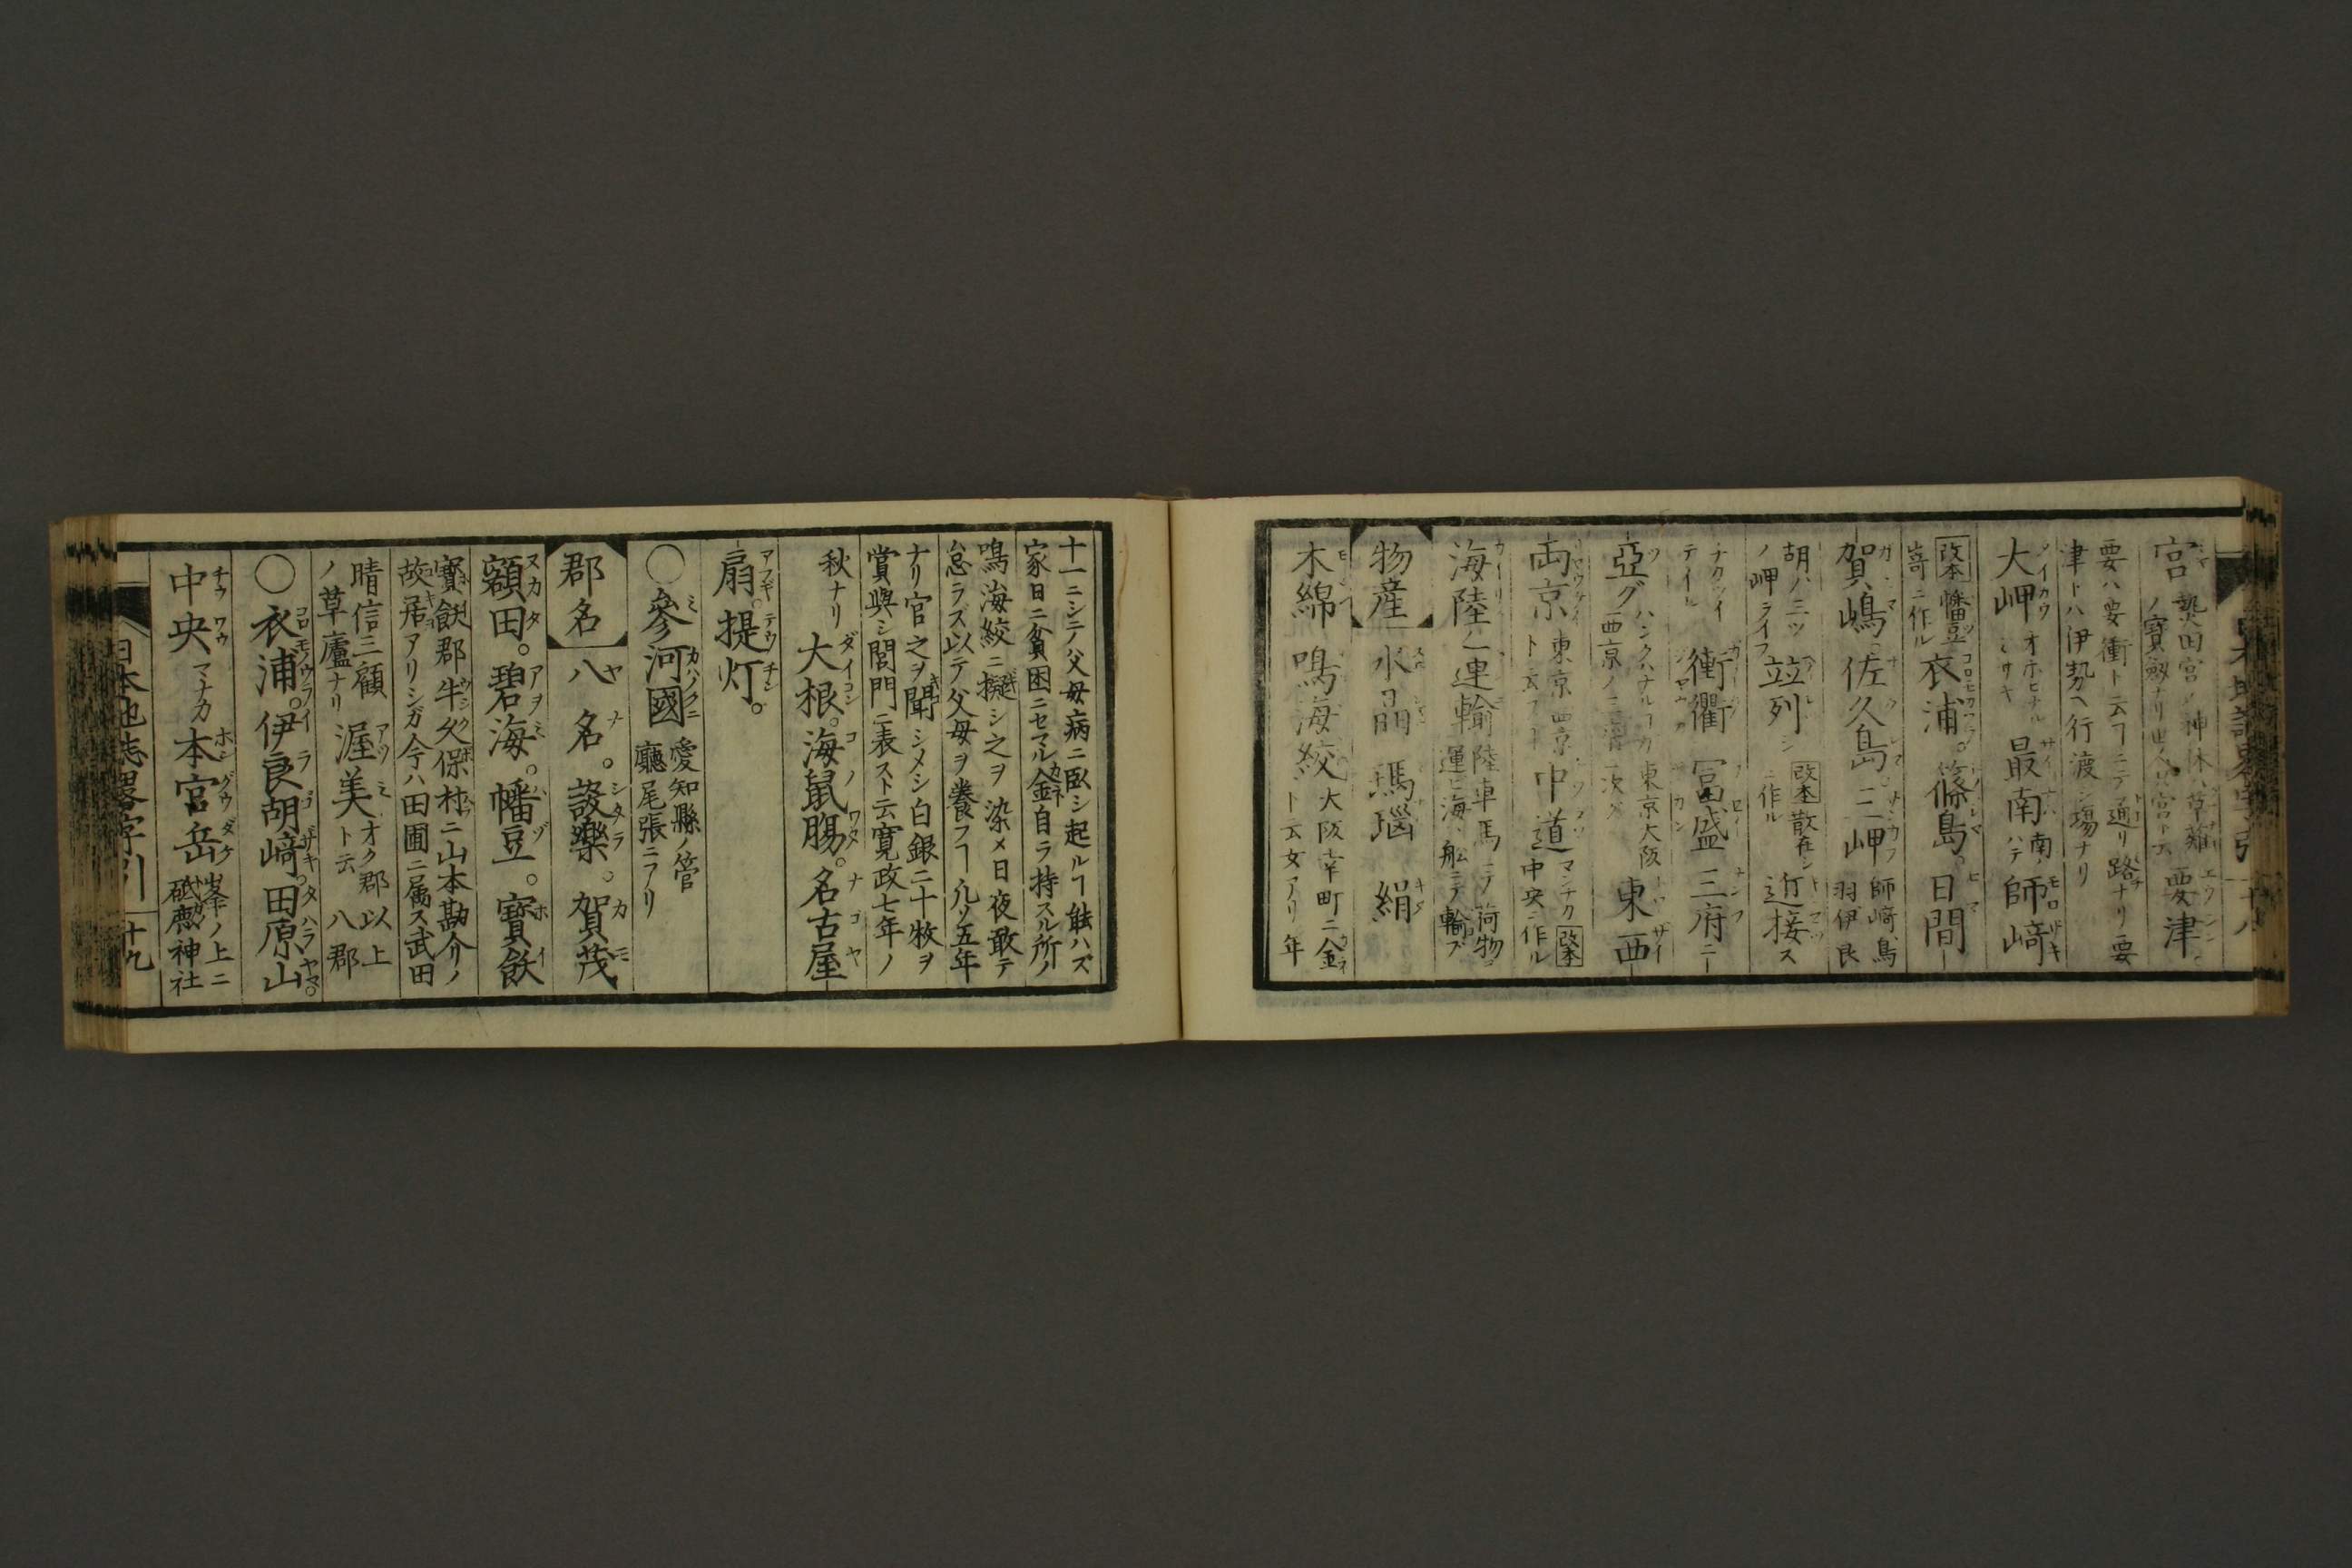 宮 熱田宮ノ神体ハ草薙
ノ寶劔ナリ 要津。
要ハ要衝ト云フニテ通リ路ナリ要
津トハ伊勢ヘ行渡シ場ナリ
大岬 オホヒナル ミサキ 最南 南ノ ハテ 師﨑
改本 幡豆 﨑ニ作ル 衣浦。篠島。日間
賀嶋。佐久島。三岬 師﨑烏 羽伊良
胡ハ三ツ ノ岬ライフ 竝列シ 改本 散在シ ニ作ル 近接ス
衝衢 冨盛 三府ニ
亞グ 東京大阪 西京ノ 次グ 東西
両京 東京西京 ト云フ 中道 マンナカ 改本 中央ニ作ル
海陸ノ運輸 陸ハ車馬ニテ荷物ヲ 運ビ海ハ船ニテ輸ス
物産 水晶 瑪瑙 絹
木綿 鳴海絞 大阪幸町ニ金 ト云女アリ年
十一ニシテ父母病ニ臥シ起ルヿ能ハズ
家日ニ貧困ニセマル金自ラ持スル所ノ
鳴海絞ニ擬シ之ヲ染メ日夜敢テ
怠ラズ以テ父母ヲ養フヿ凡ソ五年
ナリ官之ヲ聞シメシ白銀二十枚ヲ
賞與シ閭門ニ表スト云寛政七年ノ
秋ナリ 大根。海鼠腸。名古屋
扇。提灯。
〇參河國 愛知縣ノ管 廳尾張ニアリ
郡名 八名。設樂。賀茂
額田。碧海。幡豆。寳飫
寳飫郡牛久保村ニ山本勘介ノ
故居アリシガ今ハ田圃ニ属ス武田
晴信三顧 ノ草廬ナリ 渥美 オク郡 ト云 以上 八郡
〇衣浦。伊良胡﨑。田原山。
中央 マンナカ 本宮岳 峯ノ上ニ 砥鹿神社
日本地誌畧字引 十九